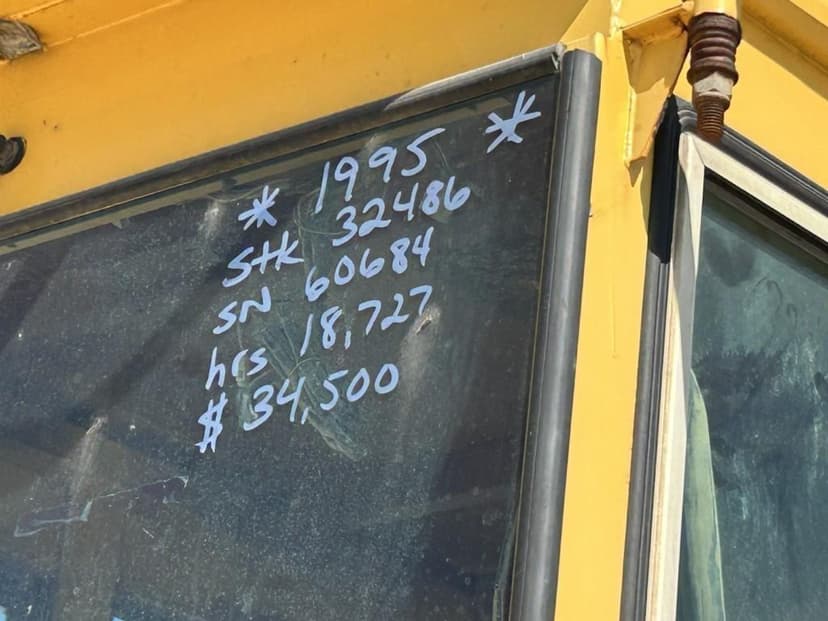 * 1995 *
Stk 32486
SN 60684
hrs 18,727
$ 34,500